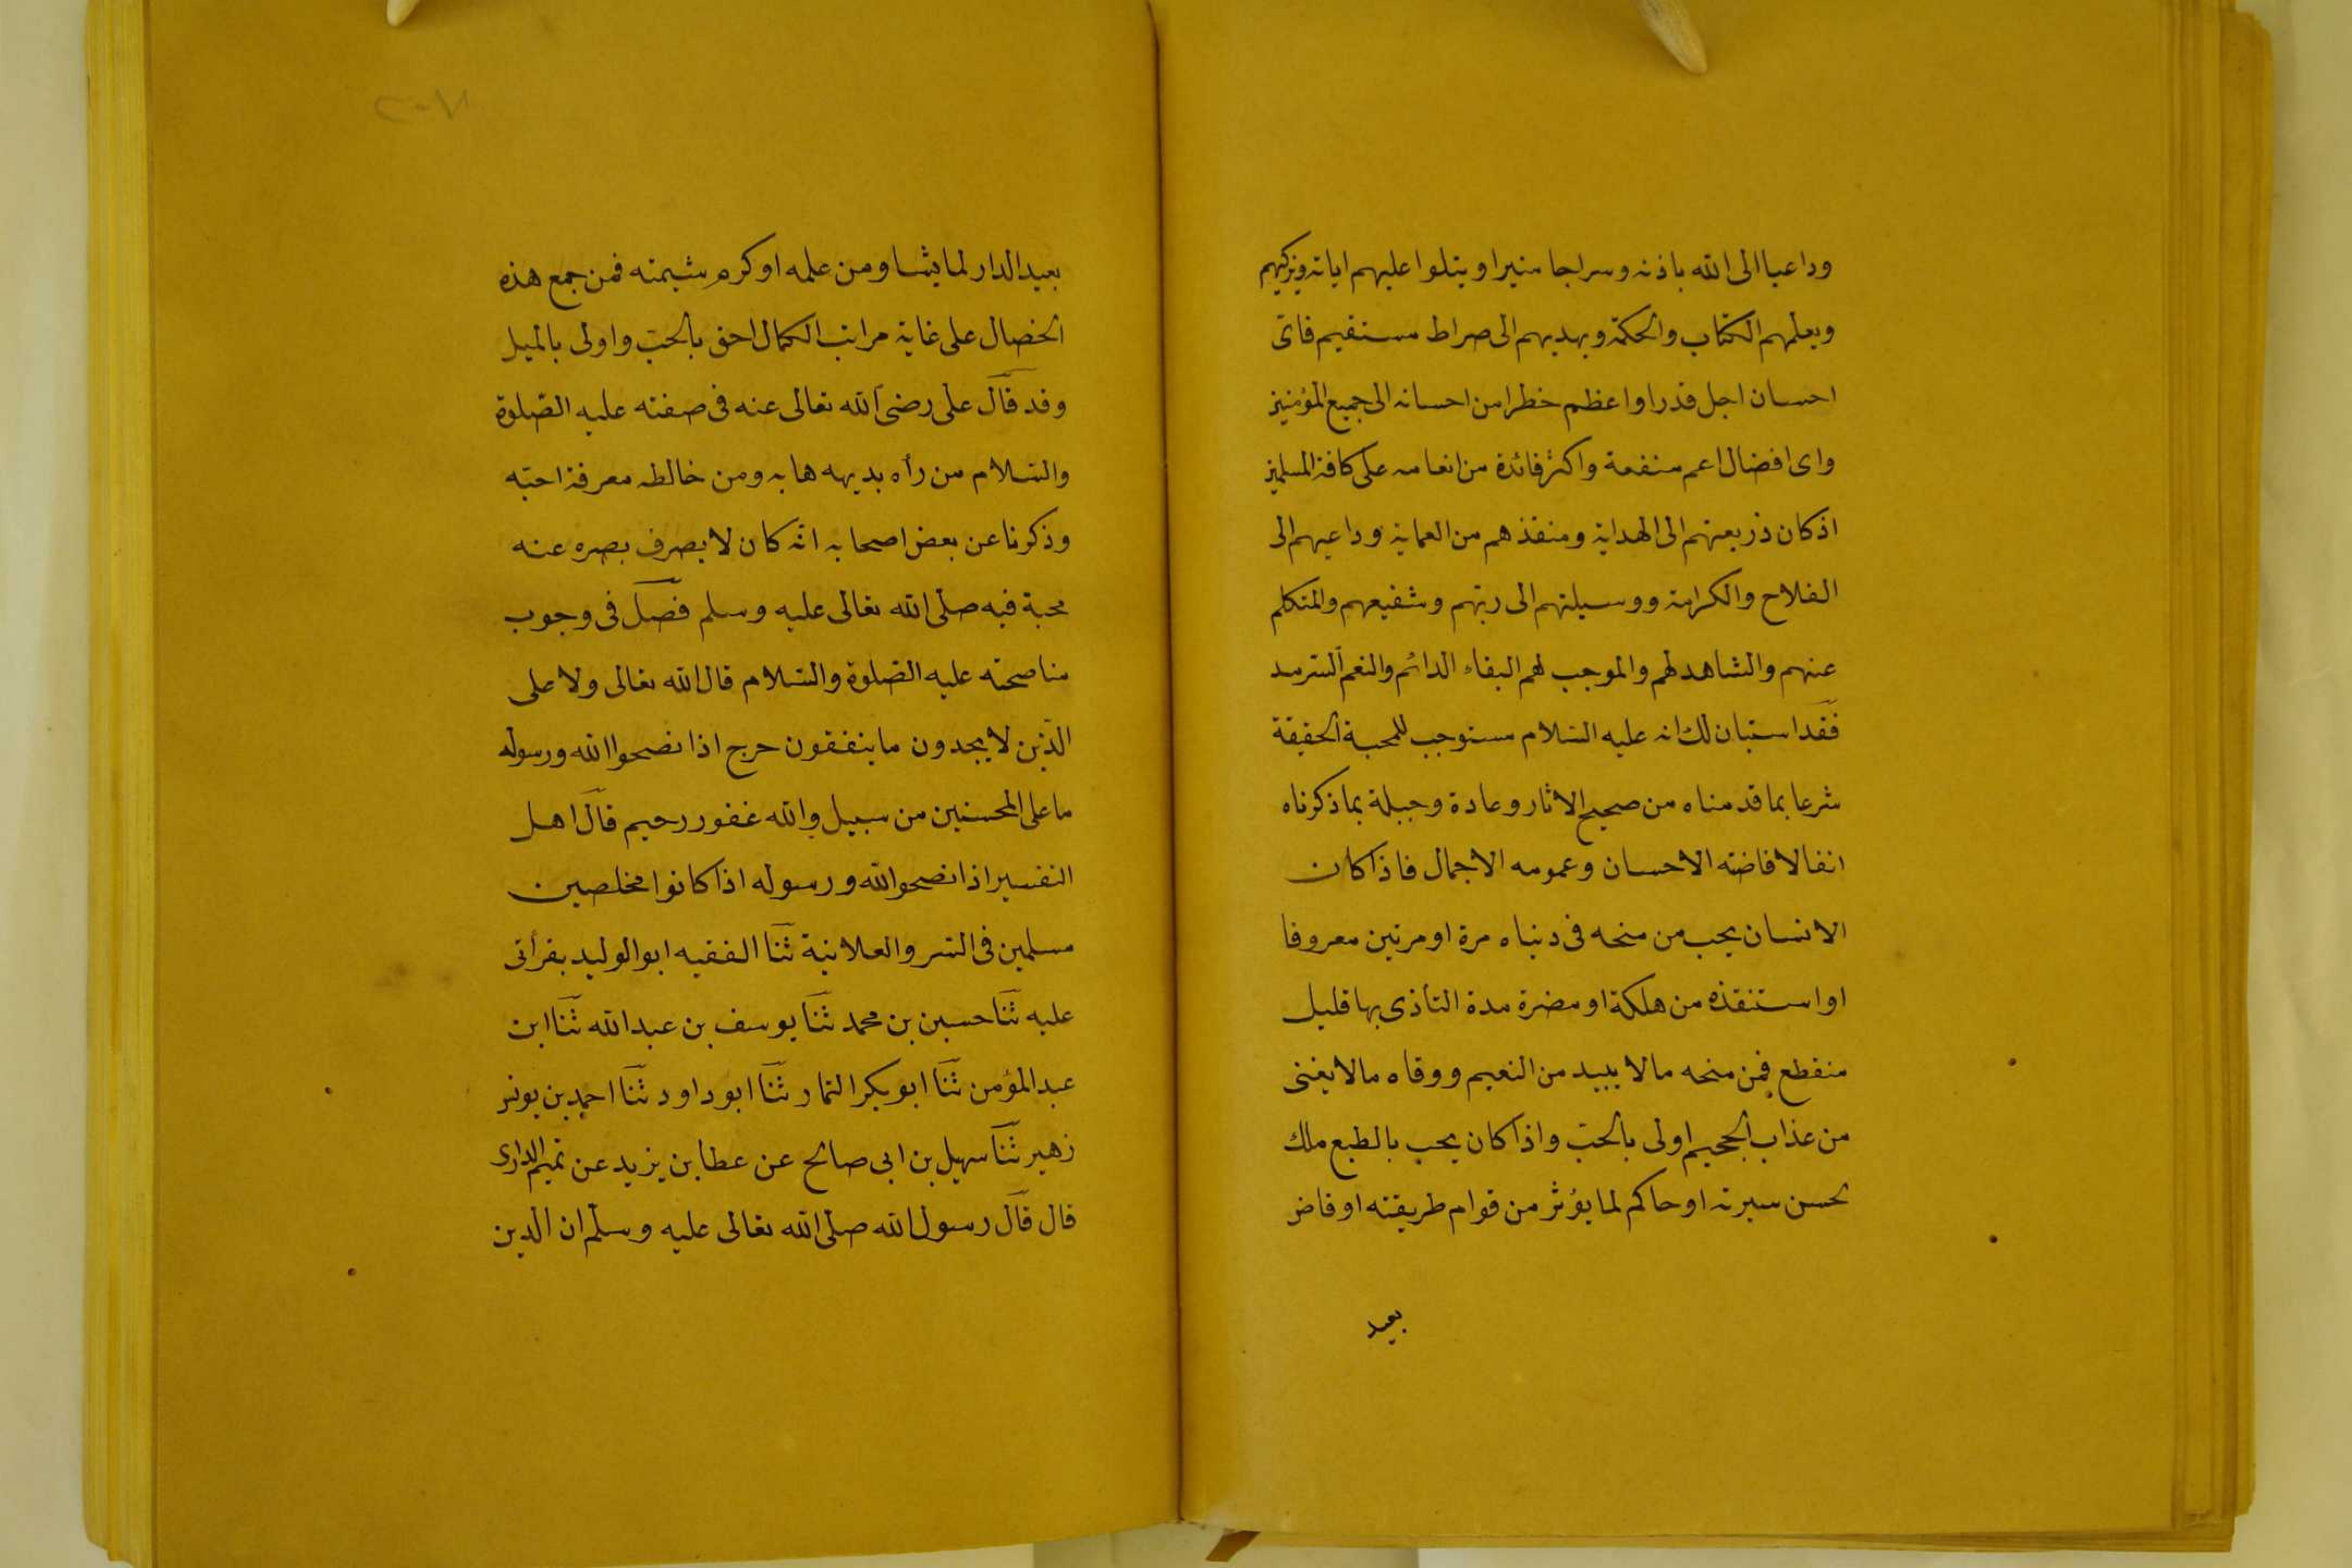 وداعيا الى الله باذنه وسراجا منيرا ويتلوا عليهم اياته ويزكيهم
ويعلمهم الكتاب والحكمة ويهديهم الى صراط مستقيم فاى
احسان اجل قدرا واعظم خطرا من احسانه الى جميع المؤمنين
واى افضال اعم منفعة واكثر فائدة من انعامه على كافة المسلمين
اذ كان ذريعتهم الى الهداية ومنقذهم من العماية وداعيهم الى
الفلاح والكرامة ووسيلتهم الى ربّهم وشفيعهم والمتكلم
عنهم والشاهد لهم والموجب لهم البقاء الدائم والنعم السّرمد
فقد استبان لك انه عليه السّلام مستوجب للمحبة الحقيقة
شرعا بما قدمناه من صحيح الاثار وعادة وجبلة بما ذكرناه
انفا لافاضته الاحسان وعمومه الاجمال فاذا كان
الانسان يحب من منحه فى دنياه مرة او مرتين معروفا
او استنقذه من هلكة او مضرة مدة التأذى بها قليل
منقطع فمن منحه مالا يبيد من النعيم ووقاه مالا يفنى
من عذاب الجحيم اولى بالحبّ واذا كان يحب بالطبع ملك
لحسن سيرته او حاكم لما يؤثر من قوام طريقته او قاض
بعيد
٢٠٧
بعيد الدار لما يشاد من علمه او كرم شيمته فمن جمع هذه
الخصال على غاية مراتب الكمال احق بالحبّ واولى بالميل
وقد قال على رضى الله تعالى عنه فى صفته عليه الصّلوة
والسّلام من رأه بديهه هابه ومن خالطه معرفة احبّه
وذكرنا عن بعض اصحابه انّه كان لا يصرف بصره عنه
محبة فيه صلّى الله تعالى عليه وسلم فصل فى وجوب
مناصحته عليه الصّلوة والسّلام قال الله تعالى ولا على
الذّين لا يجدون ما ينفقون حرج اذا نصحوا الله ورسوله
ما على المحسنين من سبيل والله غفور رحيم قال اهل
التفسير اذا نصحوا الله ورسوله اذا كانوا مخلصين
مسلمين فى السّر والعلانية ثنا الفقيه ابو الوليد بقرأتى
عليه ثنا حسين بن محمد ثنا يوسف بن عبد الله ثنا ابن
عبد المؤمن ثنا ابو بكر التمار ثنا ابو داود ثنا احمد بن يونس
زهير ثنا سهيل بن ابى صالح عن عطا بن يزيد عن تميم الدارى
قال قال رسول الله صلّى الله تعالى عليه وسلّم ان الّدين